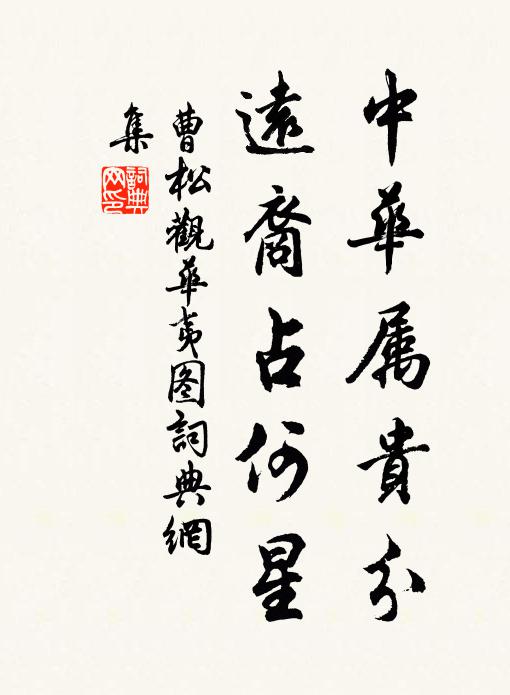 中華属貴分
遠裔占何星
曹松觀華夷图詞典網
集
詞典
网印